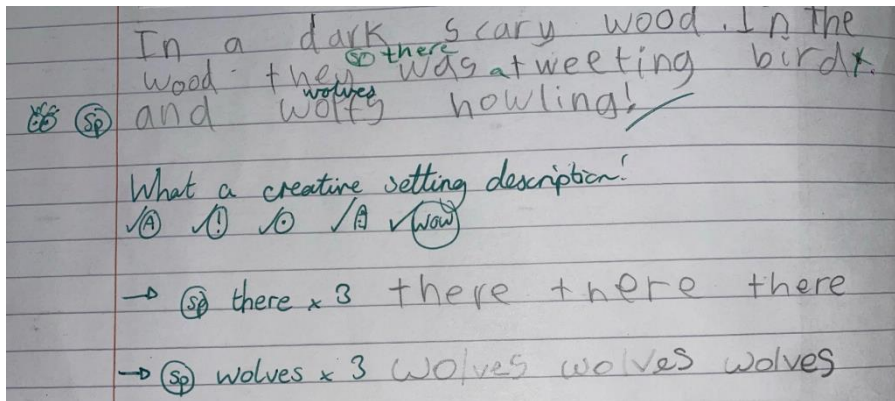 In a dark scary wood. In the
sp there
wood they was a tweeting bird.
wolves
sp and wolfs howling!
What a creative setting description!
✓A ✓! ✓. ✓A ✓Wow
→ sp there x 3 there there there
→ sp wolves x 3 wolves wolves wolves